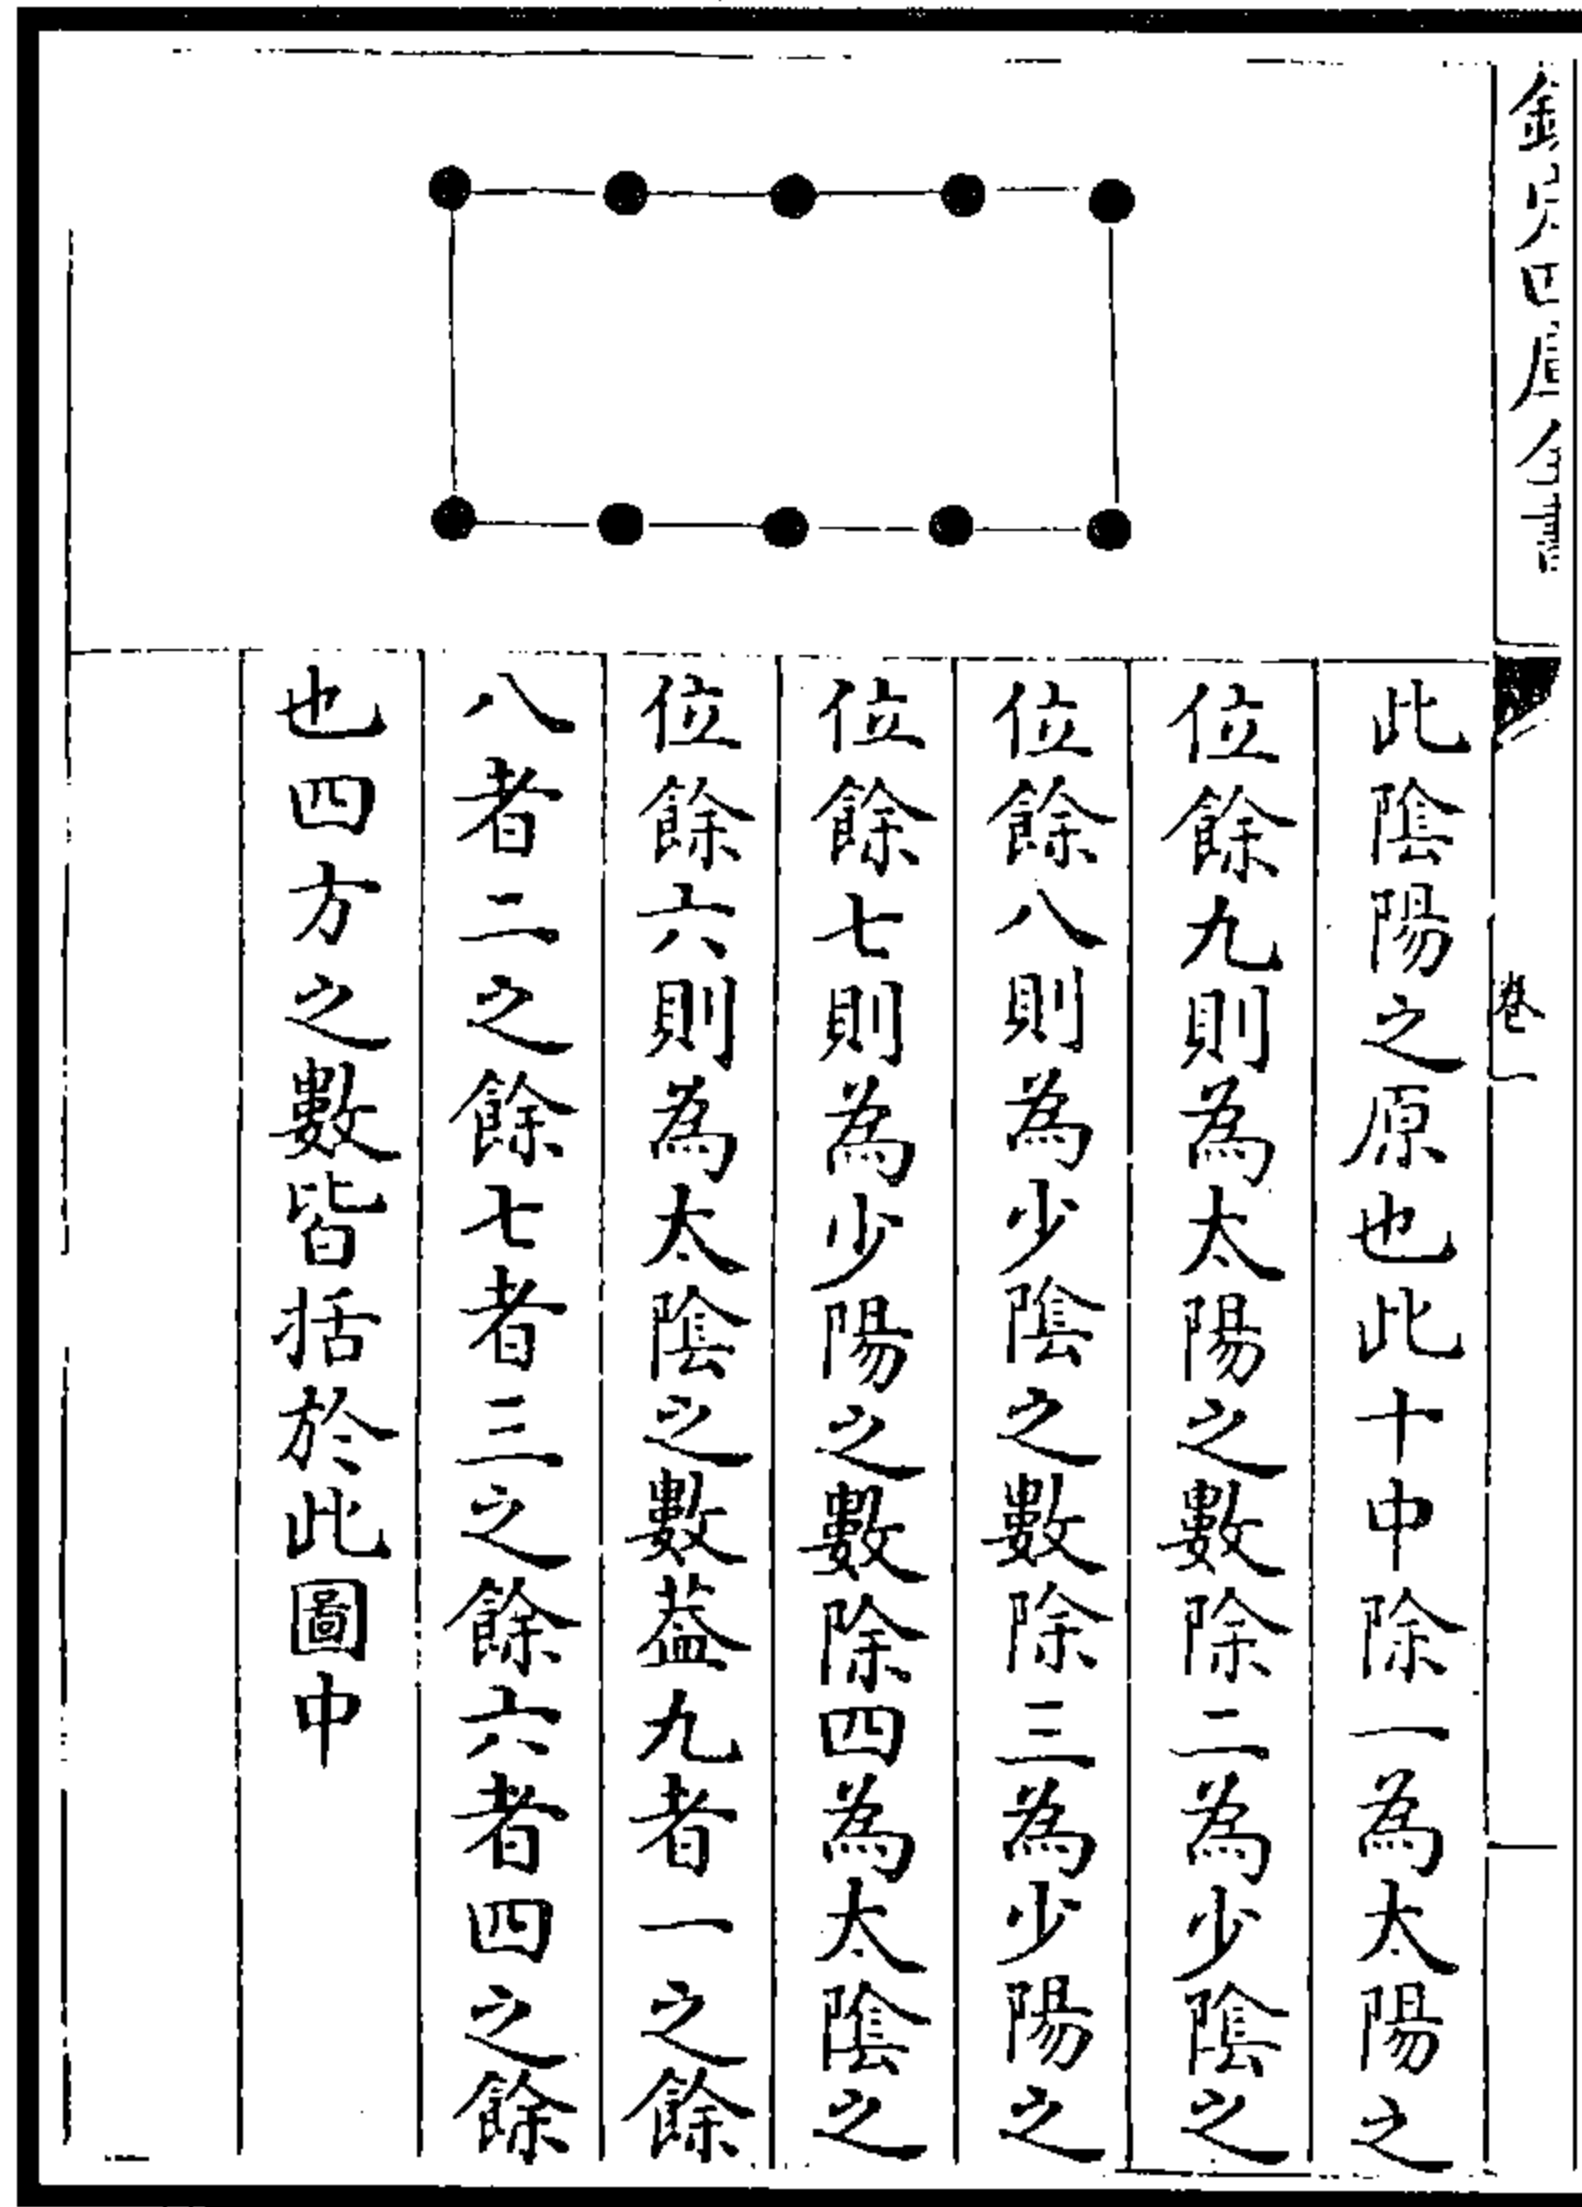 欽定四庫全書
卷一
此隂陽之原也此十中除一為太陽之
位餘九則為太陽之數除二為少隂之
位餘八則為少隂之數除三為少陽之
位餘七則為少陽之數除四為太隂之
位餘六則為太隂之數葢九者一之餘
八者二之餘七者三之餘六者四之餘
也四方之數皆括於此圖中